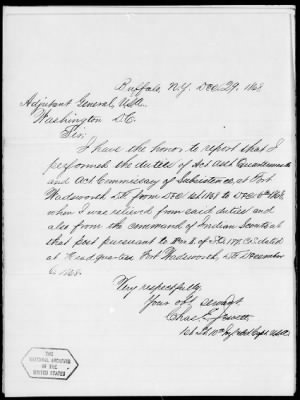 Buffalo, N.Y. Dec 29, 1868
Adjutant General, U.S.A.
Washington D.C.
Sir:
I have the honor to report that I
performed the duties of Act. Asst. Quartermaster
and Act. Commissary of Subsistence, at Fort
Wadsworth D.T. from Dec 1st 1868 to Dec 6th 1868,
when I was relieved from said duties and
also from the command of Indian Scouts at
that post pursuant to Par 2. of S.O. 179. C.S. dated
at Headquarters Fort Wadsworth, D.T. December
6, 1868.
Very respectfully,
Your obt servant,
Chas. E. Jewett
1st Lt. 10th Inf.
THE
NATIONAL ARCHIVES
OF THE
UNITED STATES